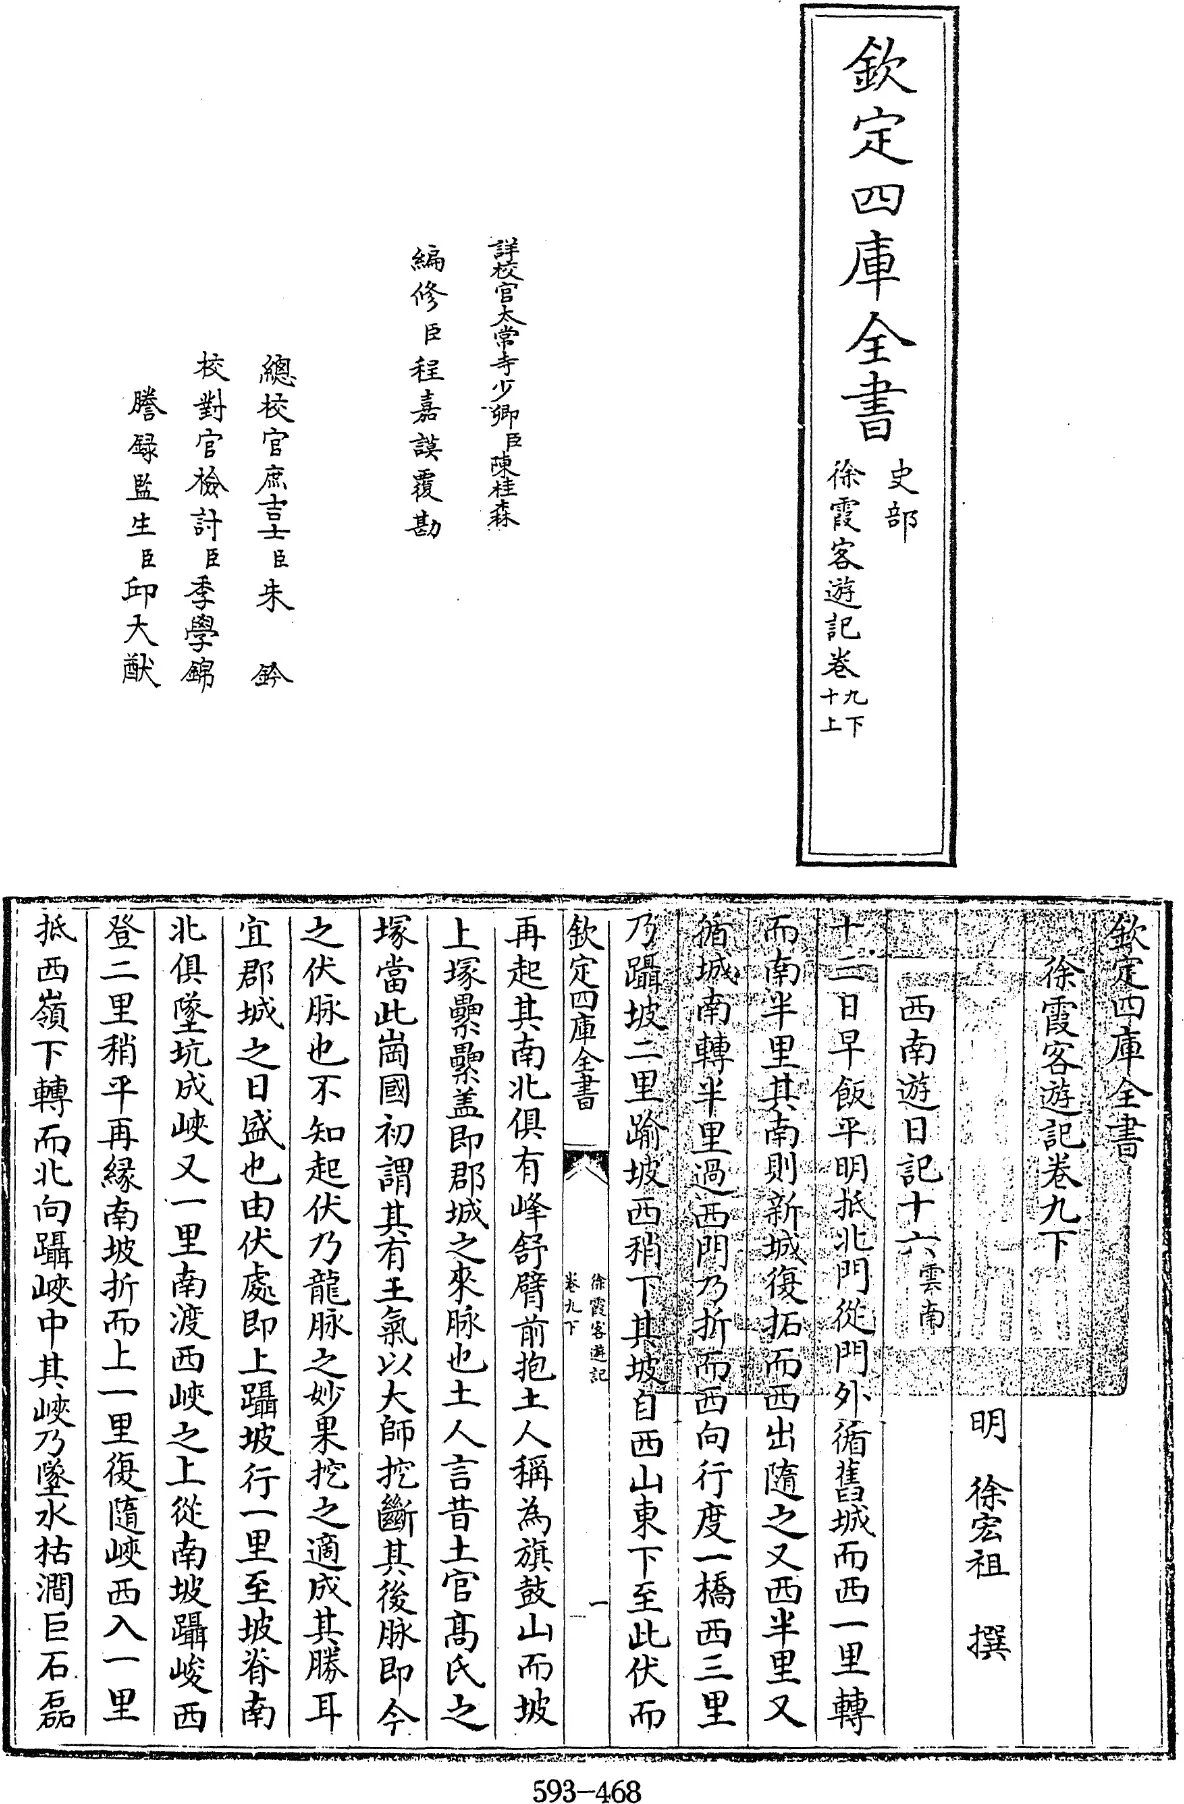 欽定四庫全書
史部
徐霞客遊記卷九下
十上
詳校官太常寺少卿臣陳桂森
編修臣程嘉謨覆勘
總校官庶吉士臣朱鈐
校對官檢討臣季學錦
謄錄監生臣邱大猷
欽定四庫全書
徐霞客遊記卷九下
明 徐宏祖 撰
西南遊日記十六雲南
十二日早飯平明抵北門從門外循舊城而西一里轉
而南半里其南則新城復拓而西出隨之又西半里又
循城南轉半里過西門乃折而西向行度一橋西三里
乃躡坡二里踰坡西稍下其坡自西山東下至此伏而
欽定四庫全書
徐霞客遊記
卷九下
一
再起其南北俱有峰舒臂前抱土人稱為旗鼓山而坡
上塚纍纍蓋即郡城之來脉也土人言昔土官髙氏之
塚當此崗國初謂其有王氣以大師挖斷其後脉即今
之伏脉也不知起伏乃龍脉之妙果挖之適成其勝耳
宜郡城之日盛也由伏處即上躡坡行一里至坡脊南
北俱墜坑成峽又一里南渡西峽之上從南坡躡峻西
登二里稍平再緣南坡折而上一里復隨峽西入一里
抵西嶺下轉而北向躡峽中其峽乃墜水枯澗巨石磊
593-468